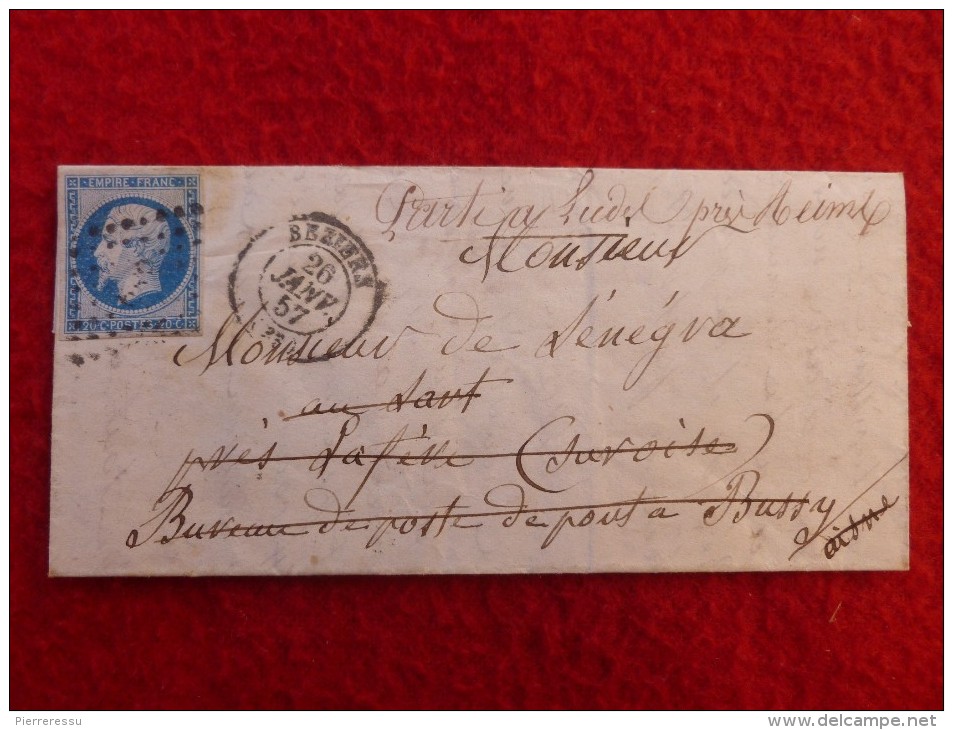 EMPIRE FRANC
20·C·POSTES·20·C
BEZIERS
26
JANV.
57
Parti a près Reims
Monsieur
Monsieur de Sénégra
au Sart
près Lafère (survoise)
Bureau de poste de pont a Bussy
aisne
Pierreressu
www.delcampe.net